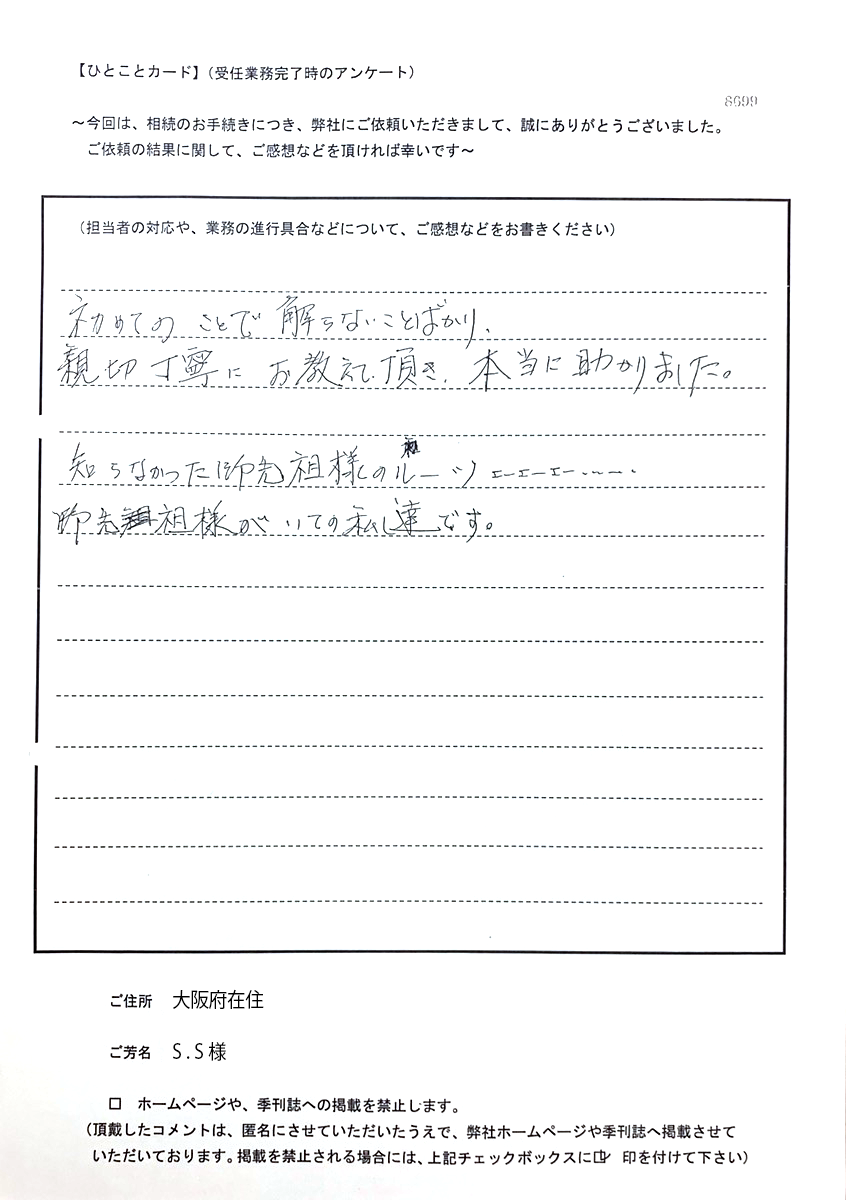 【ひとことカード】（受任業務完了時のアンケート）
8699
～今回は、相続のお手続きにつき、弊社にご依頼いただきまして、誠にありがとうございました。
ご依頼の結果に関して、ご感想などを頂ければ幸いです～
（担当者の対応や、業務の進行具合などについて、ご感想などをお書きください）
初めてのことで解らないことばかり、
親切丁寧にお教えて頂き、本当に助かりました。
知らなかった御先祖様のルーツ
御先祖様がいての私達です。
ご住所 大阪府在住
ご芳名 S.S様
□ ホームページや、季刊誌への掲載を禁止します。
（頂戴したコメントは、匿名にさせていただいたうえで、弊社ホームページや季刊誌へ掲載させて
いただいております。掲載を禁止される場合には、上記チェックボックスに☑ 印を付けて下さい）